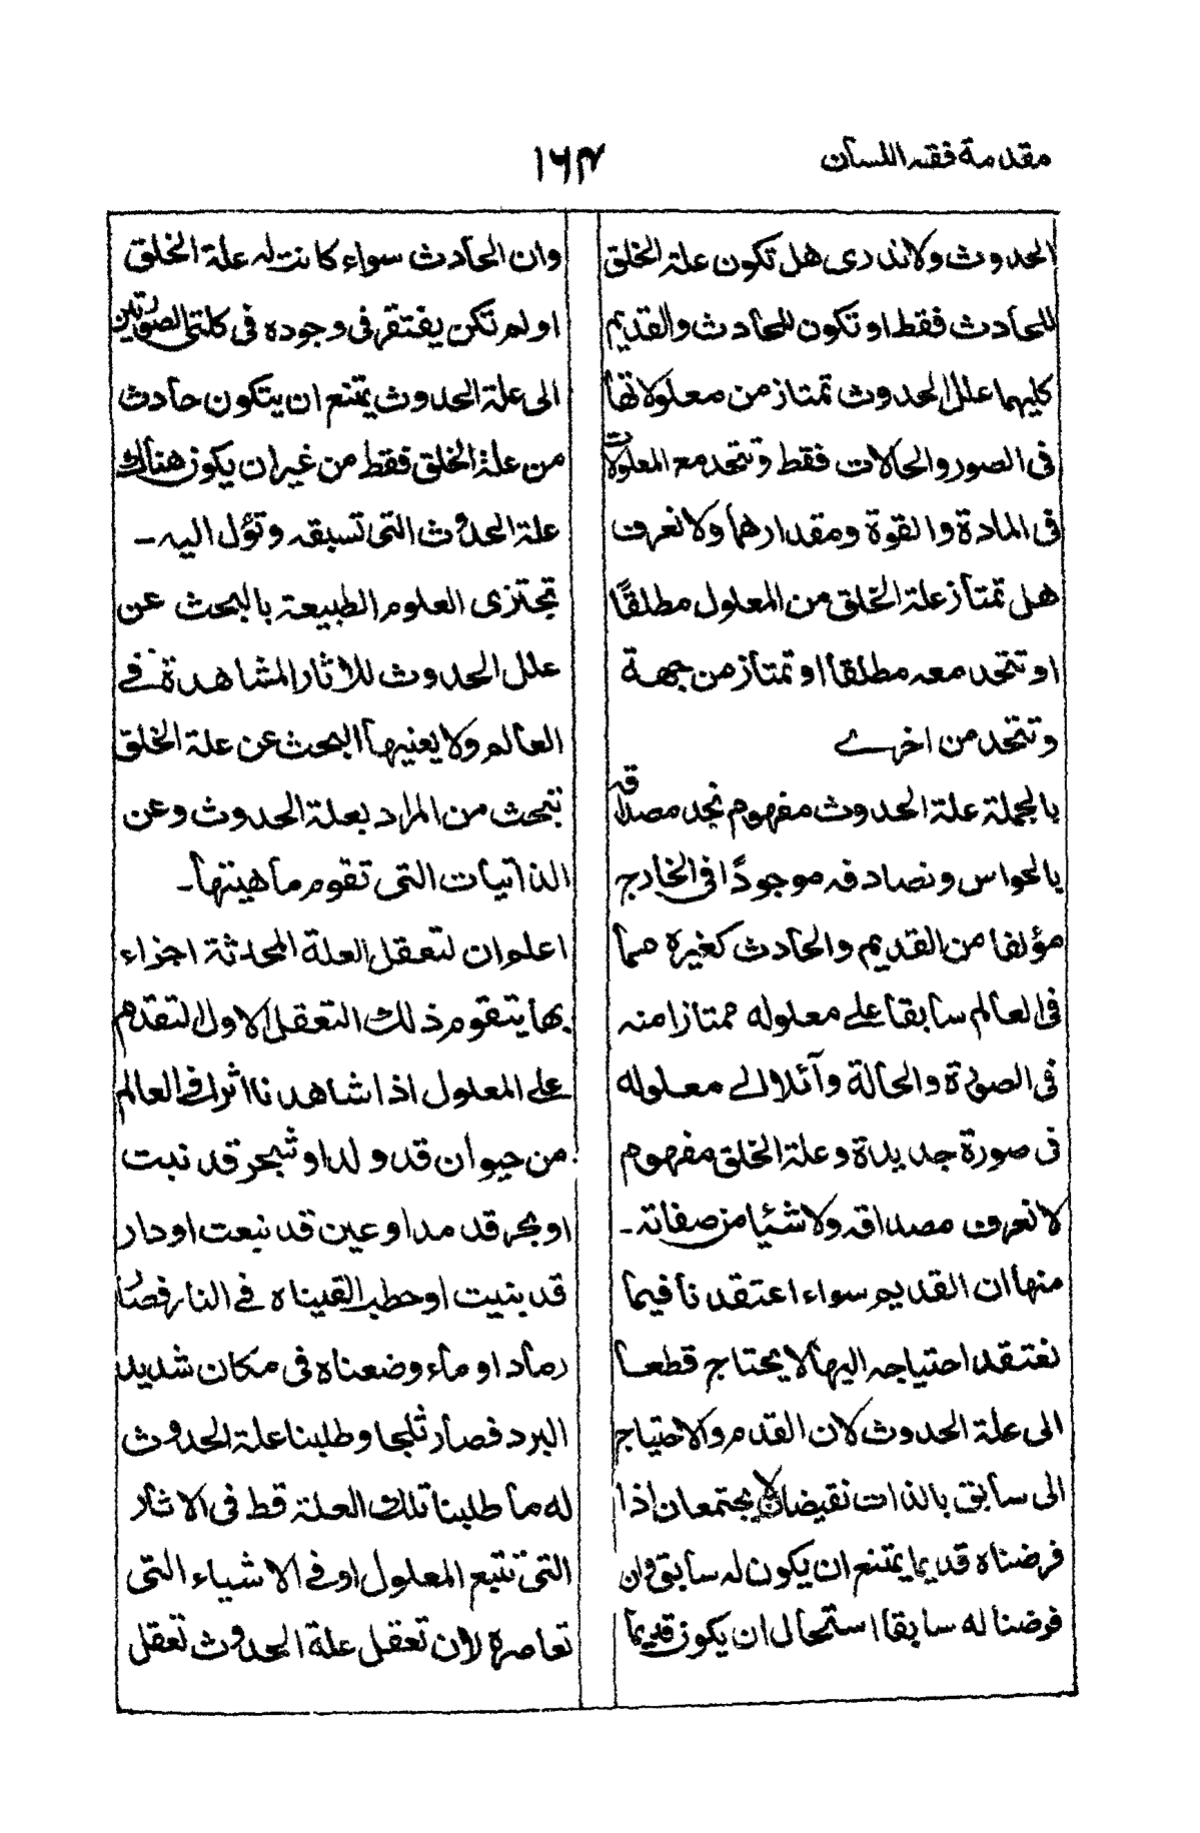 مقدمة فقه اللسان
١٦٣
الحدوث ولا ندرى هل تكون علة الخلق
للحادث فقط او تكون للحادث والقديم
كليهما علل الحدوث تمتاز من معلولاتها
فى الصور والحالات فقط وتتحد مع المعلولات
فى المادة والقوة ومقدارهما ولا نعرف
هل تمتاز علة الخلق من المعلول مطلقًا
او تتحد معه مطلقا او تمتاز من جهة
وتتحد من اخرے
بالجملة علة الحدوث مفهوم نجد مصداقه
بالحواس ونصادفه موجودًا فى الخارج
مؤلفا من القديم والحادث كغيره مما
فى العالم سابقا علے معلوله ممتازا منه
فى الصورة والحالة وآئلا الے معلوله
فى صورة جديدة وعلة الخلق مفهوم
لا نعرف مصداقه ولا شئيا من صفاته ـ
منها ان القديم سواء اعتقدنا فيما
نعتقد احتياجه اليها لا يحتاج قطعا
الى علة الحدوث لان القدم والاحتياج
الى سابق بالذات نقيضان لا يجتمعان اذا
فرضناه قديما يمتنع ان يكون له سابق وان
فرضنا له سابقا استحال ان يكون قديما
وان الحادث سواء كانت له علة الخلق
او لم تكن يفتقر فى وجوده فى كلتى الصورتين
الى علة الحدوث يمتنع ان يتكون حادث
من علة الخلق فقط من غير ان يكون هناك
علة الحدوث التى تسبقه وتؤل اليه ـ
تجتزى العلوم الطبيعة بالبحث عن
علل الحدوث للاثار المشاهدة فے
العالم ولا يعنيها البحث عن علة الخلق
نبحث من المراد بعلة الحدوث وعن
الذاتيات التى تقوم ماهيتها ـ
اعلم وان لتعقل العلة المحدثة اجزاء
بها يتقوم ذلك التعقل الاول التقدم
علے المعلول اذا شاهدنا اثرا فے العالم
من حيوان قد ولد او شجر قد نبت
او بحر قد مد او عين قد نبعت او دار
قد بنيت او حطب القيناه فے النار فصار
رماد او ماء وضعناه فى مكان شديد
البرد فصار ثلجا وطلبنا علة الحدوث
له ما طلبنا تلك العلة قط فى الاثار
التى تتبع المعلول او فے الاشياء التى
تعاصره لان تعقل علة الحدوث تعقل